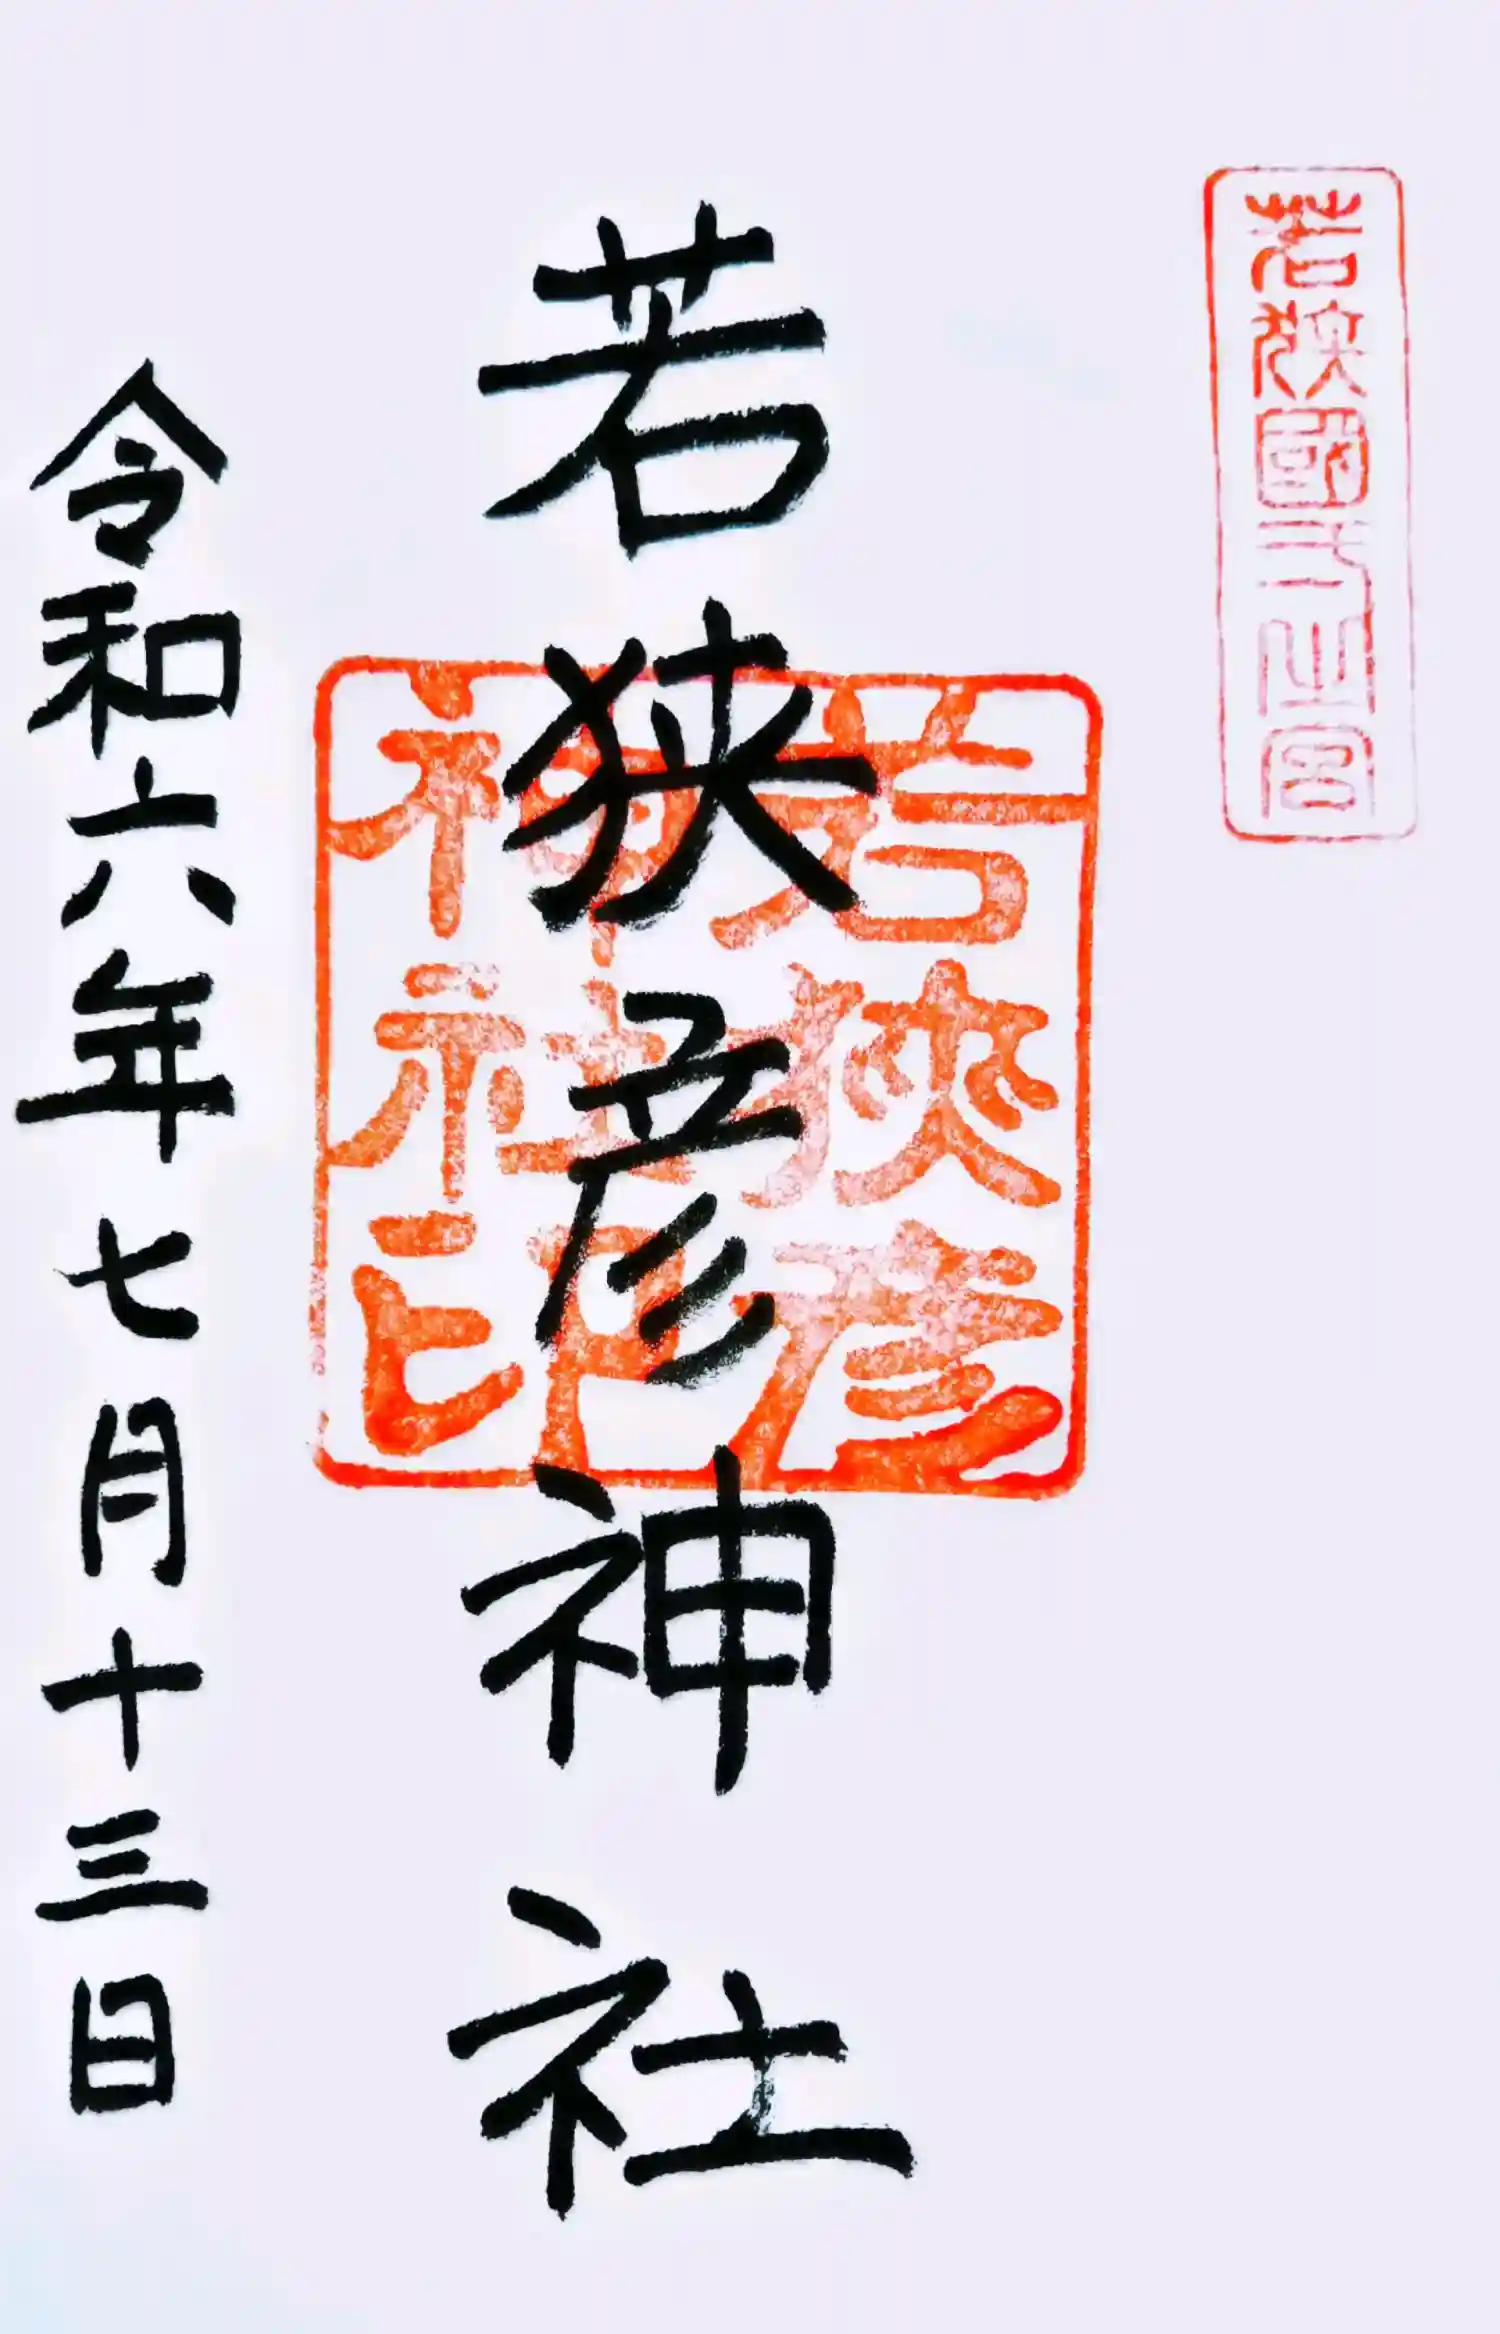 若狹國弌之宮
若狭彦神社
若狹彦
神社印
令和六年七月十三日